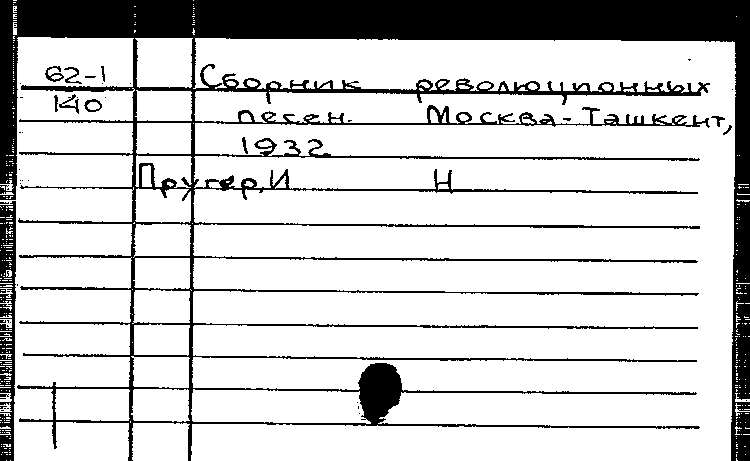 62-1 Сборник революционных
140 песен. Москва-Ташкент,
1932
Пругер, И Н